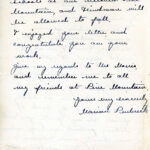 Mountain, and Hindman will
be allowed to fall.
I enjoyed your letter and
congratulate you on your
work.
Give my regards to the
and remember me to all
my friends at Pine Mountain
Yours very sincerely,